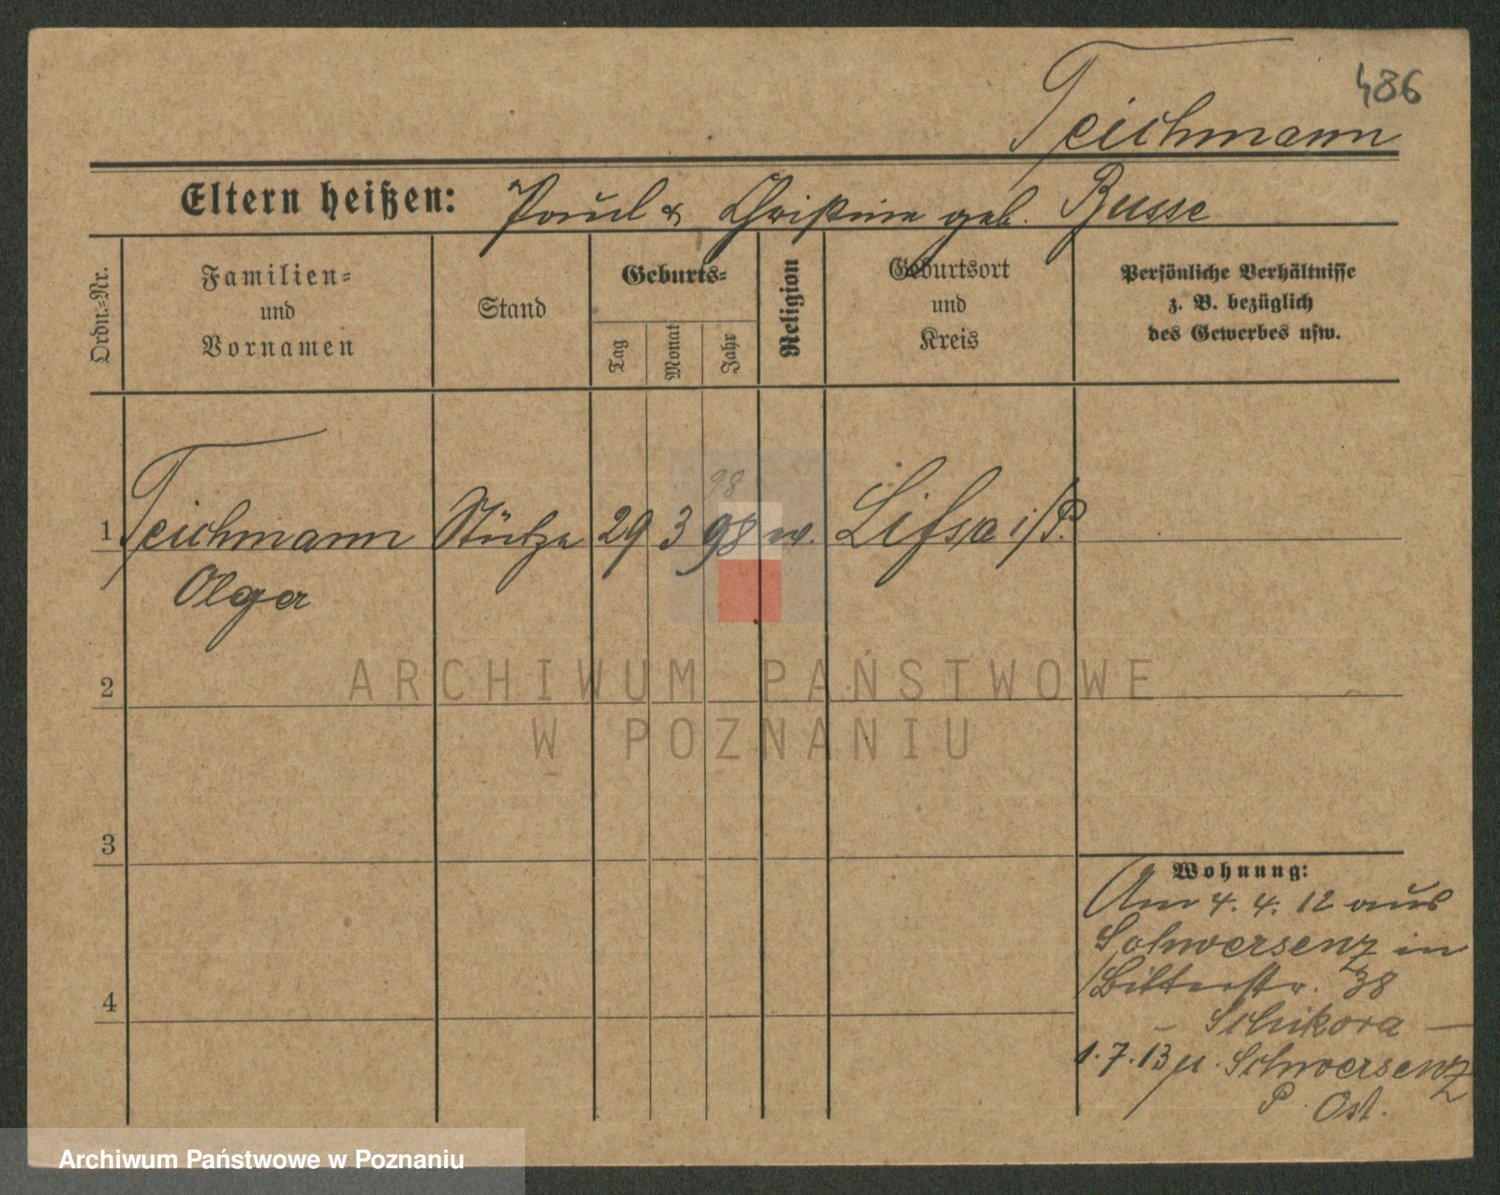 486
Teichmann
Eltern heißen: Paul & Christine geb. Busse
Ordn.-Nr.
Familien- und Vornamen
Stand
Geburts-
Tag
Monat
Jahr
Religion
Geburtsort und Kreis
Persönliche Verhältnisse z. B. bezüglich des Gewerbes usw.
98
1 Teichmann Stütze 29 3 98 w. Lissa i/P.
Olga
2
ARCHIWUM PAŃSTWOWE
W POZNANIU
3
Wohnung:
Am 4. 4. 12 aus
Schwersenz in
Ritterstr. 38
– Schikora –
4
1. 7. 13 n. Schwersenz
P. Ost.
Archiwum Państwowe w Poznaniu